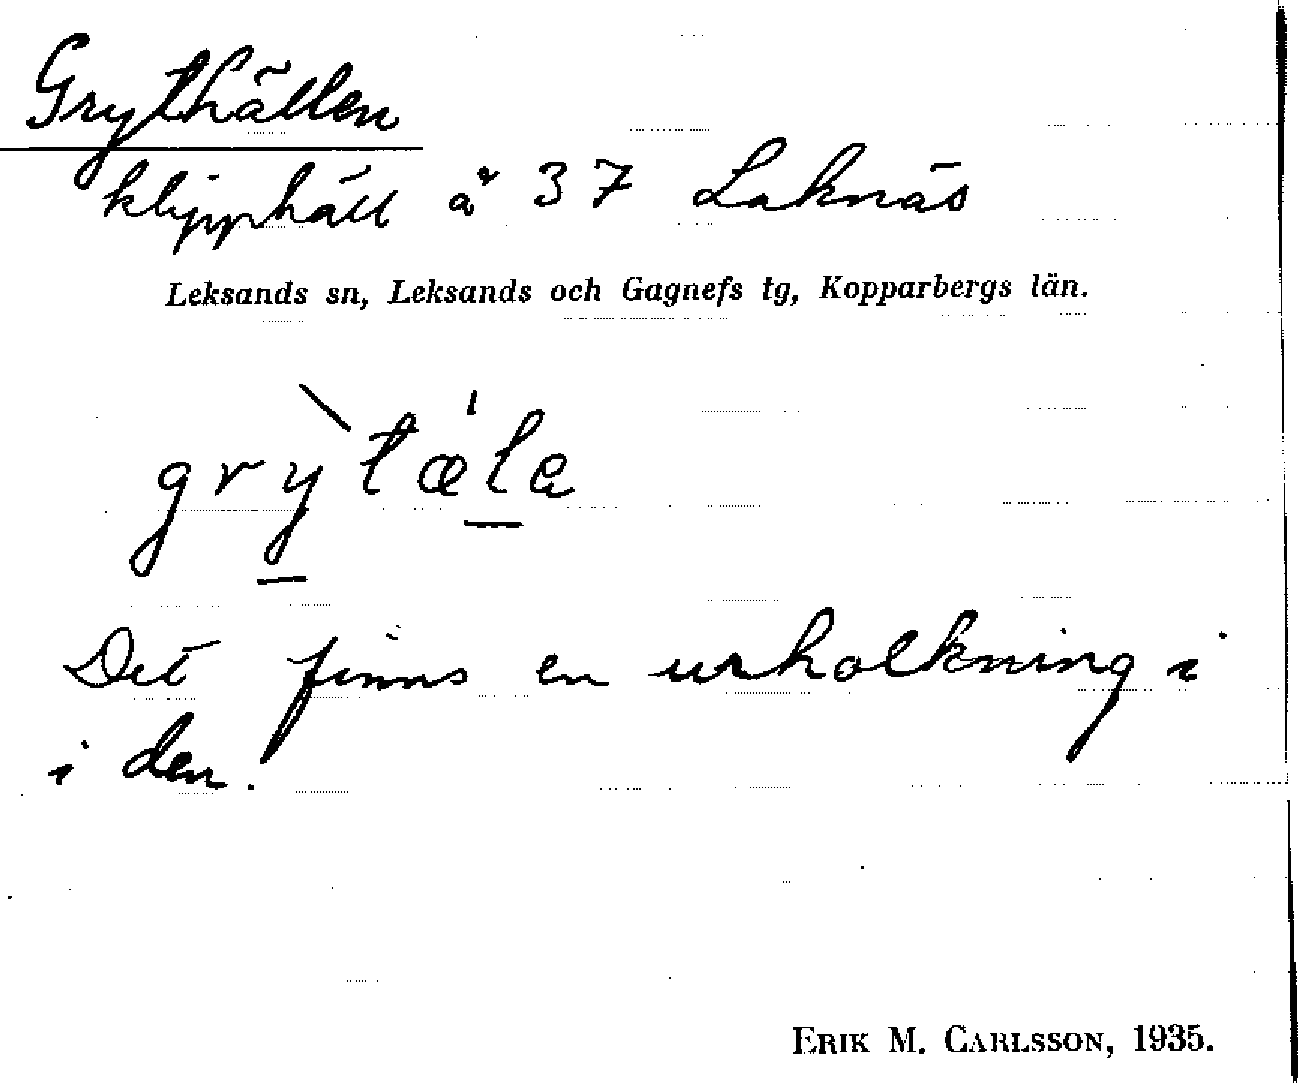 Grythällen
klipphäll å 37 Laknäs
Leksands sn, Leksands och Gagnefs tg, Kopparbergs län.
grỳtæ̀la
Det finns en urholkning i
i den.
ERIK M. CARLSSON, 1935.